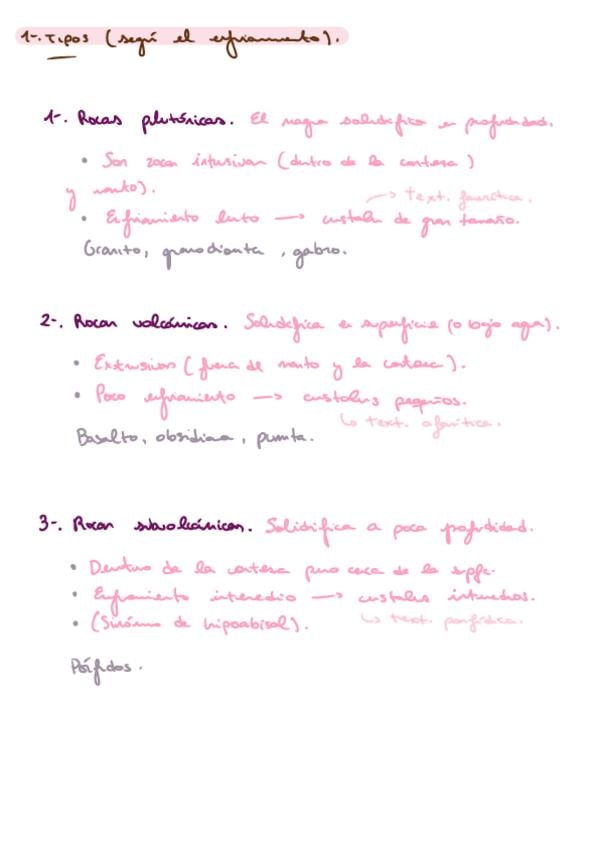 1-. Tipos (según el enfriamiento).
1-. Rocas plutónicas. El magma solidifica en profundidad.
• Son rocas intrusivas (dentro de la corteza)
y manto).
→ text. fanerítica.
• Enfriamiento lento → cristales de gran tamaño.
Granito, granodiorita, gabro.
2-. Rocas volcánicas. Solidifica en superficie (o bajo agua).
• Extrusivas (fuera de manto y la corteza).
• Poco enfriamiento → cristales pequeños.
↳ text. afanítica.
Basalto, obsidiana, pumita.
3-. Rocas subvolcánicas. Solidifica a poca profundidad.
• Dentro de la corteza pero cerca de la supfc.
• Enfriamiento intermedio → cristales intermedios.
• (Sinónimo de hipoabisal).
↳ text. porfídica.
Pórfidos.